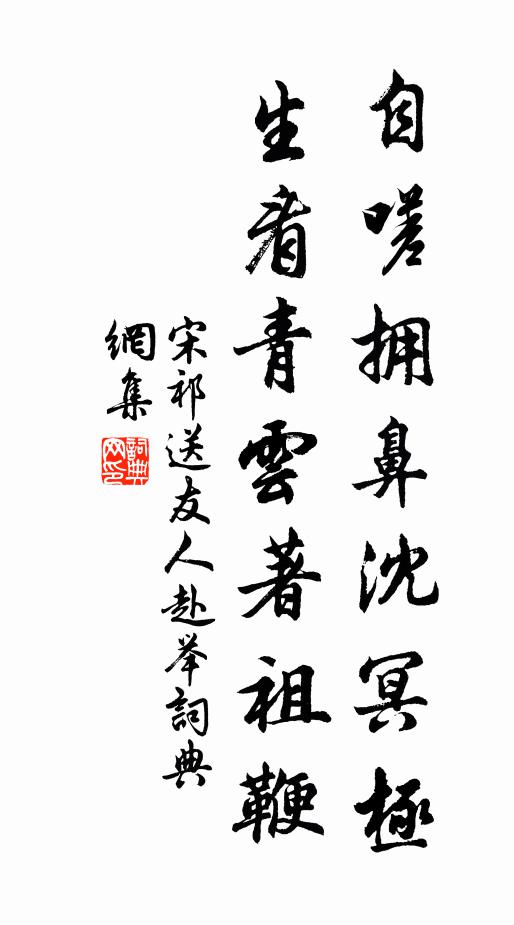 自嗟拥鼻沈冥極
生看青雲著祖鞭
宋祁送友人赴举詞典
網集
詞典網印